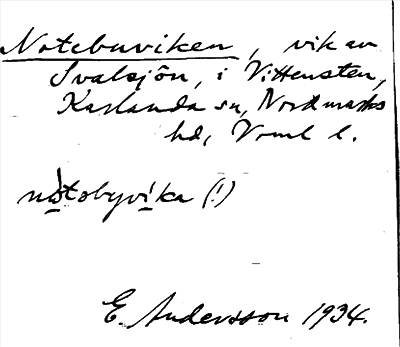 Notebuviken, vik av
Svalsjön, i Vittensten,
Karlanda sn, Nordmarks
hd, Vrml l.
nòtobyvika (!)
E. Andersson 1934.